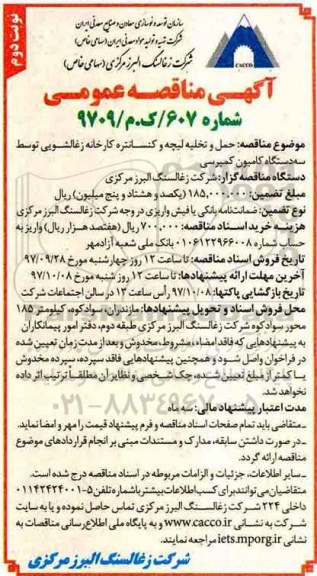 نوبت دوم
سازمان توسعه و نوسازی معادن و صنایع معدنی ایران
شرکت تهیه و تولید مواد معدنی ایران (سهامی خاص)
شرکت زغالسنگ البرز مرکزی (سهامی خاص)
CACCO
آگهی مناقصه عمومی
شماره ۶۰۷/ک.م/۹۷۰۹
موضوع مناقصه: حمل و تخلیه لیچه و کنسانتره کارخانه زغالشویی توسط
سه دستگاه کامیون کمپرسی
دستگاه مناقصه گزار: شرکت زغالسنگ البرز مرکزی
مبلغ تضمین: ۱۸۵,۰۰۰,۰۰۰ (یکصد و هشتاد و پنج میلیون) ریال
نوع تضمین: ضمانت‌نامه بانکی یا فیش واریزی در وجه شرکت زغالسنگ البرز مرکزی
هزینه خرید اسناد مناقصه: ۷۰۰,۰۰۰ ریال (هفتصد هزار ریال) واریز به
حساب شماره ۰۱۰۶۱۲۲۹۶۶۰۰۸ بانک ملی شعبه آزادمهر
تاریخ فروش اسناد مناقصه: تا ساعت ۱۲ روز چهارشنبه مورخ ۹۷/۰۹/۲۸
آخرین مهلت ارائه پیشنهادها: تا ساعت ۱۲ روز شنبه مورخ ۹۷/۱۰/۰۸
تاریخ بازگشایی پاکتها: ۹۷/۱۰/۰۸ رأس ساعت ۱۳ در سالن اجتماعات شرکت
محل فروش اسناد و تحویل پیشنهادها: مازندران، سوادکوه، کیلومتر ۱۸۵
محور سوادکوه شرکت زغالسنگ البرز مرکزی طبقه دوم، دفتر امور پیمانکاران
به پیشنهادهایی که فاقد امضاء، مشروط، مخدوش و بعد از مدت زمان تعیین شده
در فراخوان واصل شود و همچنین پیشنهادهایی فاقد سپرده، سپرده مخدوش
یا کمتر از مبلغ تعیین شده، چک شخصی و نظایر آن مطلقاً ترتیب اثر داده
نخواهد شد.
مدت اعتبار پیشنهاد مالی: سه ماه
ـ متقاضی باید تمام صفحات اسناد مناقصه و فرم پیشنهاد قیمت را مهر و امضا نماید.
ـ در صورت داشتن سابقه، مدارک و مستندات مبنی بر انجام قراردادهای موضوع
مناقصه ارائه گردد.
ـ سایر اطلاعات، جزئیات و الزامات مربوطه در اسناد مناقصه درج شده است.
متقاضیان می‌توانند برای کسب اطلاعات بیشتر با شماره تلفن ۵-۰۱۱۴۲۴۲۴۰۰۱
داخلی ۲۲۴ شرکت زغالسنگ البرز مرکزی تماس حاصل نموده و یا به سایت
شرکت به نشانی www.cacco.ir و به پایگاه ملی اطلاع‌رسانی مناقصات به
نشانی iets.mporg.ir مراجعه نمایند.
شرکت زغالسنگ البرز مرکزی
۰۲۱-۸۸۳۴۹۶۷۰-۵